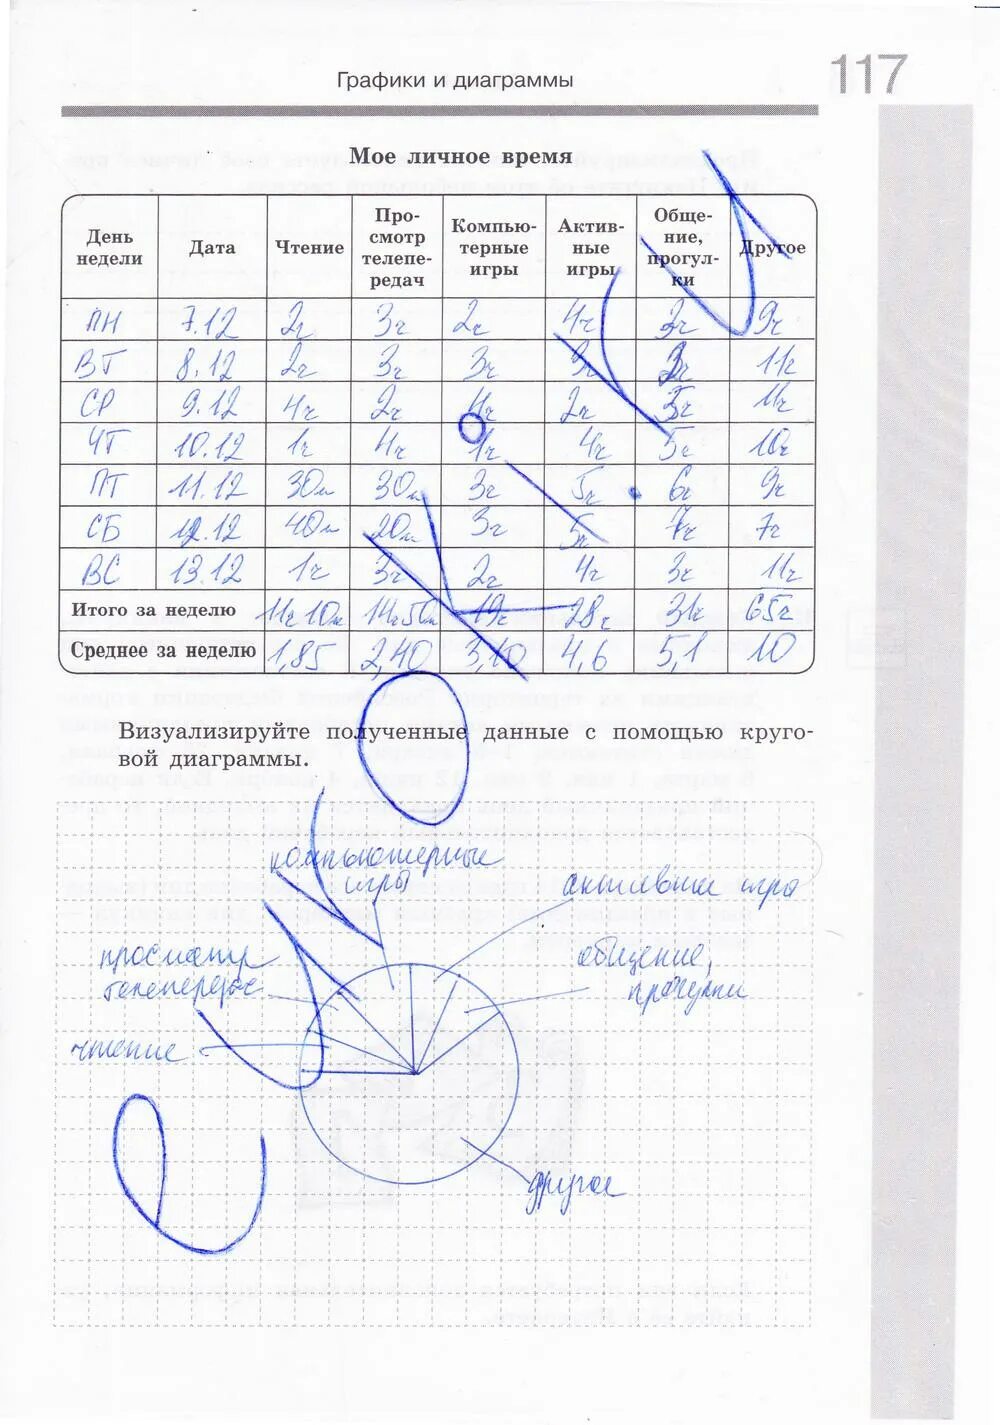 Графики и диаграммы 117
Мое личное время
День недели Дата Чтение Про-смотр телепе-редач Компью-терные игры Актив-ные игры Обще-ние, прогул-ки Другое
ПН 7.12 2ч 3ч 2ч 4ч 9ч
ВТ 8.12 2ч 3ч 3ч 11ч
СР 9.12 4ч 2ч 4ч 2ч 5ч 11ч
ЧТ 10.12 1ч 4ч 1ч 4ч 5ч 10ч
ПТ 11.12 30м 30м 3ч 5ч 6ч 9ч
СБ 12.12 40м 20м 3ч 5ч 7ч 7ч
ВС 13.12 1ч 3ч 2ч 4ч 3ч 11ч
Итого за неделю 11ч10м 14ч50м 19ч 28ч 31ч 65ч
Среднее за неделю 1,85 2,40 3,10 4,6 5,1 10
Визуализируйте полученные данные с помощью круго-
вой диаграммы.
компьютерные
игры
активные игры
просмотр
телепередач
общение,
прогулки
чтение
другое